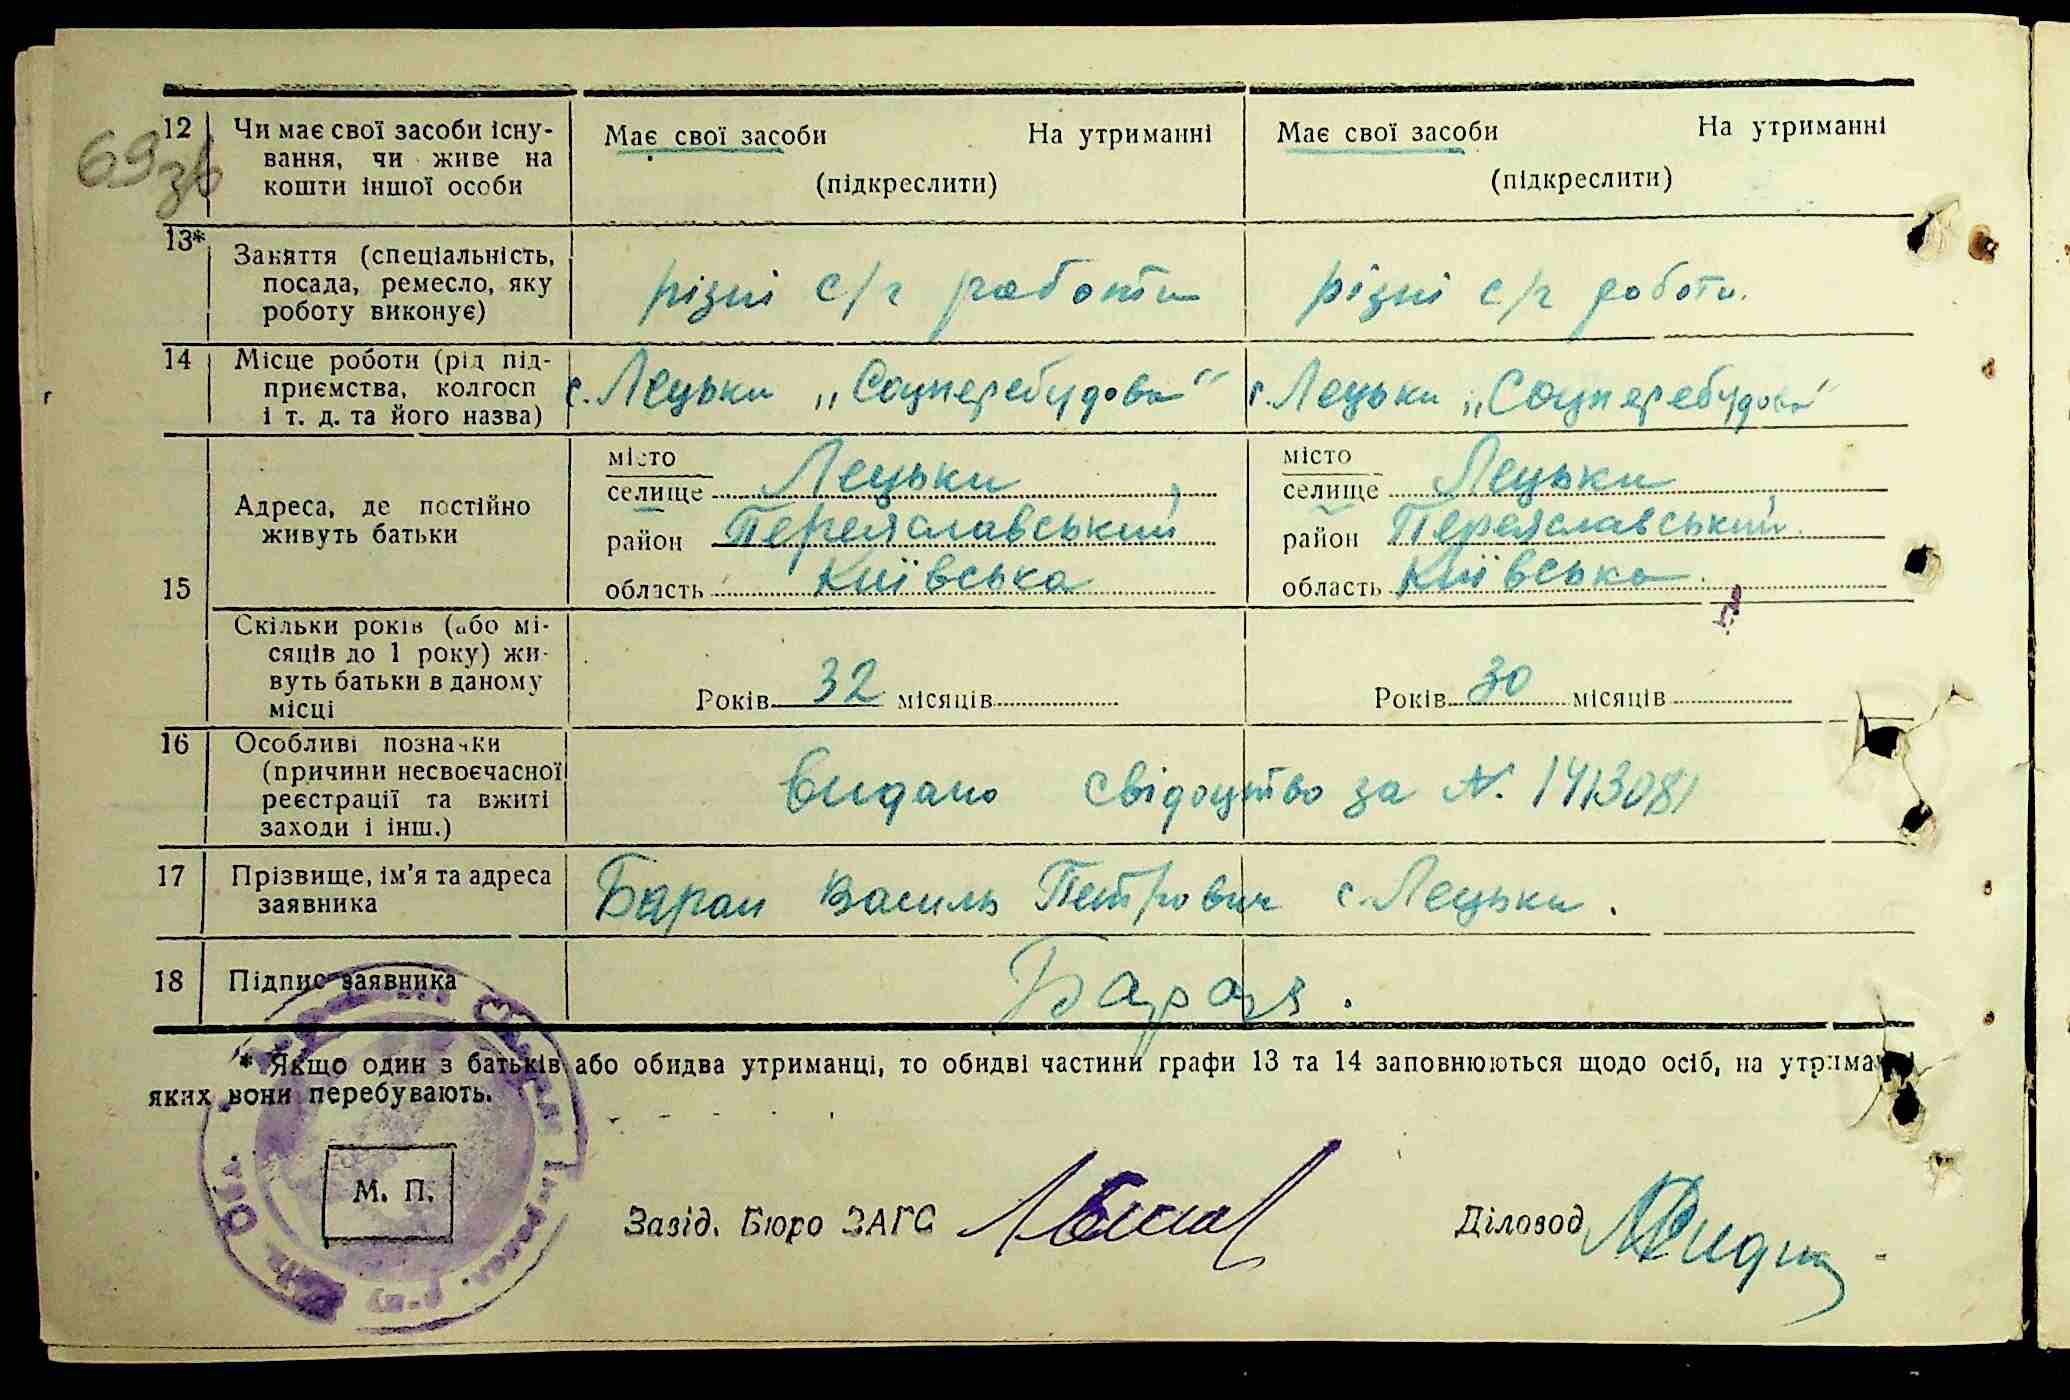 69 зв
12 Чи має свої засоби існу-
вання, чи живе на
кошти іншої особи
Має свої засоби На утриманні
(підкреслити)
Має свої засоби На утриманні
(підкреслити)
13* Заняття (спеціальність,
посада, ремесло, яку
роботу виконує)
різні с/г работи
різні с/г роботи.
14 Місце роботи (рід під-
приємства, колгосп
і т. д. та його назва)
с. Лецьки „Соцперебудова"
с. Лецьки „Соцперебудова"
15 Адреса, де постійно
живуть батьки
місто
селище Лецьки
район Переяславський
область Київська
місто
селище Лецьки
район Переяславський.
область Київська.
Скільки років (або мі-
сяців до 1 року) жи-
вуть батьки в даному
місці
Років 32 місяців
Років 30 місяців
16 Особливі позначки
(причини несвоєчасної
реєстрації та вжиті
заходи і інш.)
Видано свідоцтво за №. 1413081
17 Прізвище, ім'я та адреса
заявника
Баран Василь Петрович с. Лецьки.
18 Підпис заявника
Баран.
* Якщо один з батьків або обидва утриманці, то обидві частини графи 13 та 14 заповнюються щодо осіб, на
яких вони перебувають.
М. П.
Завід. Бюро ЗАГС
Діловод